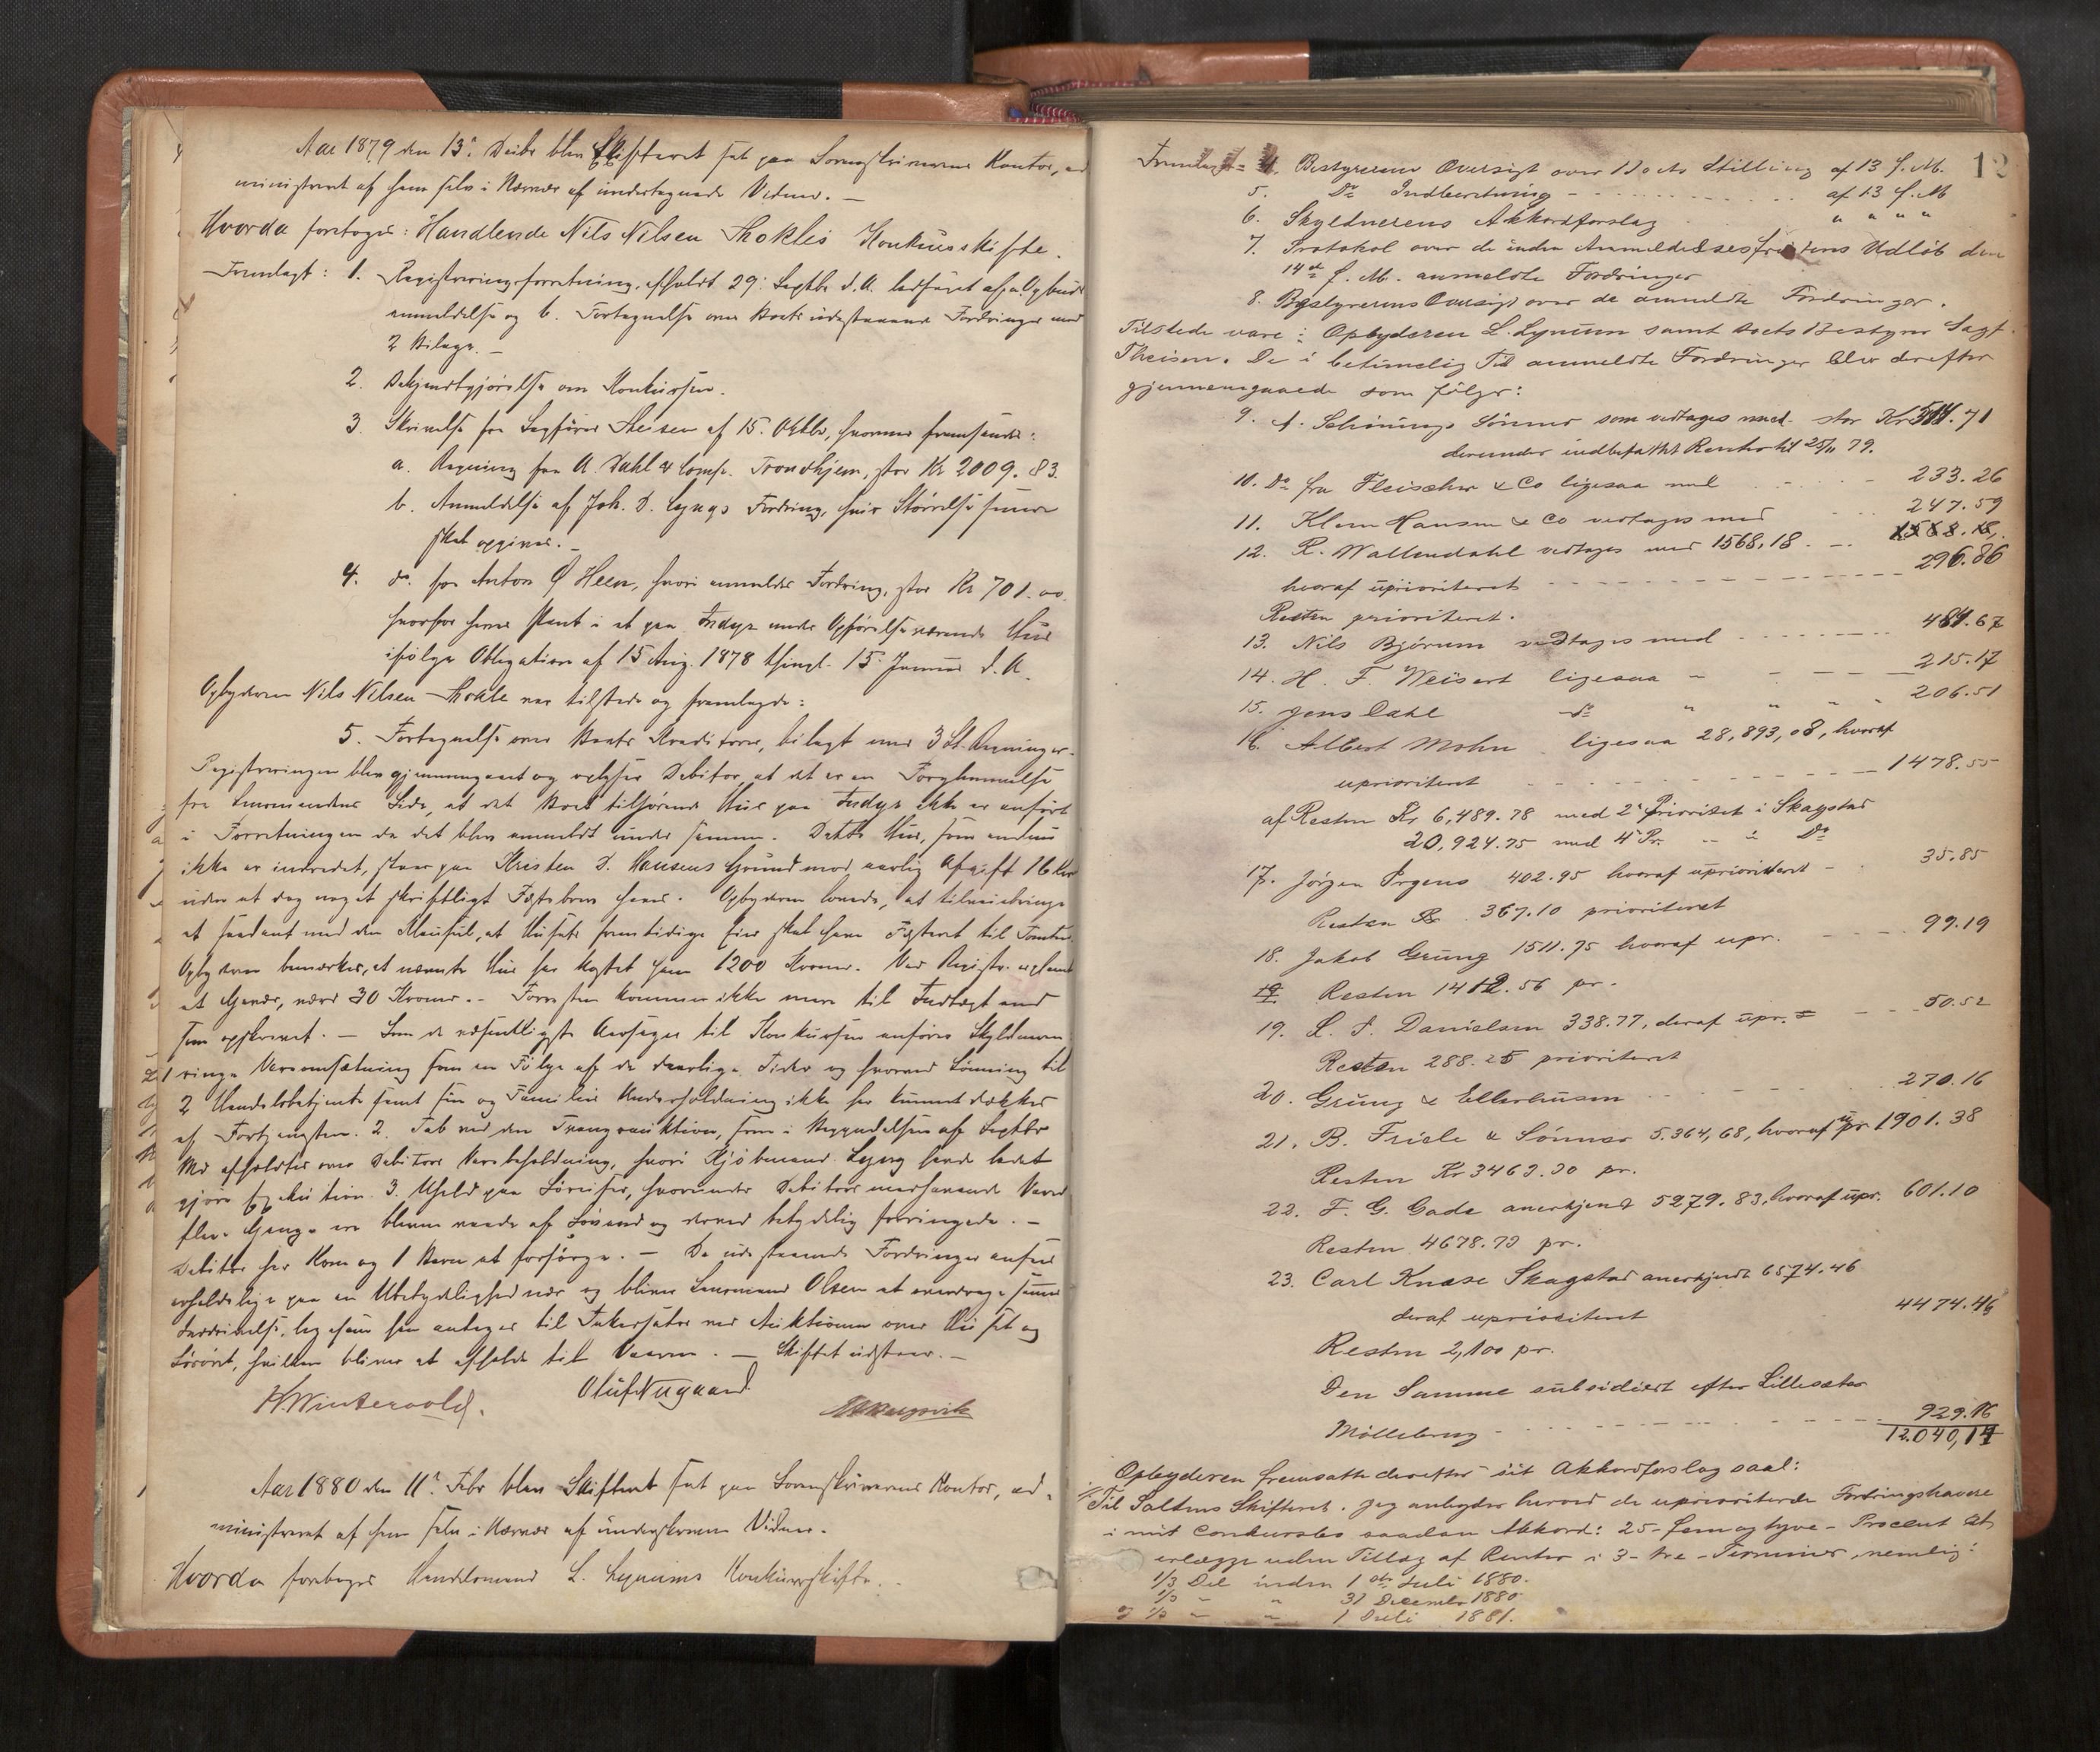 Aar 1879 den 13de Decbr blev Skifteret sat paa Sorenskriverens Kontor, ad
ministreret af ham selv i Nærvær af undertegnede Vidner. —
Hvorda foretoges: Handlende Nils Nilsen Stokles Konkursskifte.
Fremlagt: 1. Registreringsforretning, afholdt 29 Septbr d.A. ledsaget af a. Opbuds
anmeldelse og b. Fortegnelse over Boets udestaaende Fordringer med
2 Bilage. —
2. Bekjendtgjørelse om Konkursen.
3. Skrivelse fra Sagfører Theisen af 15. Oktbr, hvormed fremsendes:
a. Regning fra A. Dahl & Comp. Trondhjem, stor Kr 2009.83.
b. Anmeldelse af Joh. D. Lyngs Fordring, hvis Størrelse senere
skal opgives. —
4. do. fra Anton Ø Heen, hvori anmeldes Fordring, stor Kr 701.00.
hvorfor haves Pant i et paa Indyr under Opførelse værende Huus
ifølge Obligation af 15 Aug. 1878 thingl. 15 Januar d.A.
Opbyderen Nils Nilsen Stokle var tilstede og fremlagde:
5. Fortegnelse over Boets Kreditorer, bilagt med 3 St. Regninger.
Registreringen blev gjennemgaaet og oplyser Debitor, at det er en Forglemmelse
fra Lensmandens Side, at det Boet tilhørende Hus paa Indyr ikke er anført
i Forretningen da det blev anmeldt under samme. Dette Hus, som endnu
ikke er indredet, staar paa Kristen D. Hansens Grund mod aarlig Afgift 16 Kr
uden at dog noget skriftligt Fæstebrev haves. Opbyderen lovede, at tilveiebringe
et saadant med den Klausul, at Husets fremtidige Eier skal have Fæsteret til Tomten
Opbyderen bemærker, at nævnte Hus har kostet ham 1200 Kroner. Ved Registr. er glemt
et Gevær, værd 30 Kroner. — Forresten kommer ikke mere til Indtægt end
som opskrevet. — Som de væsentligste Aarsager til Konkursen anfører Skyldneren
1 ringe Vareomsætning som en Følge af de daarlige Tider og hvorved Lønning til
2 Handelsbetjente samt sin og Families Underholdning ikke har kunnet dækkes
af Fortjenesten. 2. Tab ved den Tvangsauktion, som i Begyndelsen af Septbr
Md afholdtes over Debitors Varebeholdning, hvori Kjøbmand Lyng havde ladet
gjøre Exekution. 3. Uheld paa Søreiser, hvorunder Debitors medhavende Varer
flere Gange ere blevne vaade af Søvand og derved betydelig forringede. —
Debitor har Kone og 1 Barn at forsørge. — De udestaaende Fordringer ansees
erholdelige paa en Ubetydelighed nær og bliver Lensmand Olsen at overdrage sammes
Inddrivelse, ligesom han antages til Inkassator ved Auktionen over Huset og
Løsøret, hvilken bliver at afholde til Vaaren. — Skiftet udstaar. —
H. Wintervold.
Oluf Nygaard
Aar 1880 den 11te Febr blev Skifteret sat paa Sorenskriverens Kontor, ad-
ministreret af ham selv i Nærvær af underskrevne Vidner.
Hvorda foretoges Handelsmand L. Lynums Konkursskifte.
12
Fremlagt = 4. Bestyrerens Oversigt over Boets Stilling af 13 f.M.
5. Do Indberetning af 13 f.M
6. Skyldnerens Akkordforslag " " " "
7. Protokol over de inden Anmeldelsesfristens Udløb den
14de f.M. anmeldte Fordringer
8. Bestyrerens Oversigt over de anmeldte Fordringer.
Tilstede vare: Opbyderen L. Lynum samt Boets Bestyrer Sagf.
Theisen. De i betimelig Tid anmeldte Fordringer blev derefter
gjennemgaaede som følger:
9. A. Schønings Sønner som vedtages med stor Kr 71
derunder indbefattet Renter til 25/11 79.
10. Do fra Fleischer & Co ligesaa med 233.26
11. Klem Hansen & Co vedtages med 247.59
12. R. Wallendahl vedtages med 1568,18 1568.18,
hvoraf uprioriteret 296.86
Resten prioriteret.
13. Nils Bjørum vedtages med 481.67
14. H. F. Weisert ligesaa 215.17
15. Jens Dahl do 206.51
16. Albert Mohn ligesaa 28,893,08, hvoraf
uprioriteret 1478.55
af Resten Kr 6,489.78 med 2' Prioritet i Skagstad
20,924.75 med 4' Pr. " i Do
17. Jørgen Irgens 402.95 hvoraf uprioriteret 35.85
Resten Kr 367.10 prioriteret
18. Jakob Grung 1511.75 hvoraf upr. 99.19
19 Resten 1412.56 pr.
19. L. S. Danielsen 338.77, deraf upr. = 50.52
Resten 288.25 prioriteret
20. Grung & Ellerhusen 270.16
21. B. Friele & Sønner 5.364,68, hvoraf upr 1901.38
Resten Kr 3463.30 pr.
22. F. G. Gade anerkjendt 5279.83, hvoraf upr. 601.10
Resten 4678.73 pr.
23. Carl Knase Skagstad anerkjendt 6574.46
deraf uprioriteret 4474.46
Resten 2,100 pr.
Den Samme subsidiert efter Lillesæter
Møllebrug 929.16
12.040,14
Opbyderen fremsatte derefter sit Akkordforslag saal:
"Til Saltens Skifteret. Jeg anbyder herved de uprioriterede Fordringshavere
i mit Concursbo saadan Akkord: 25 - fem og tyve - Procent at
erlægge uden Tillæg af Renter i 3 - tre - Terminer, nemlig:
1/3 Del inden 1ste Juli 1880.
1/3 " " 31 December 1880
og 1/3 " " 1 Juli 1881.